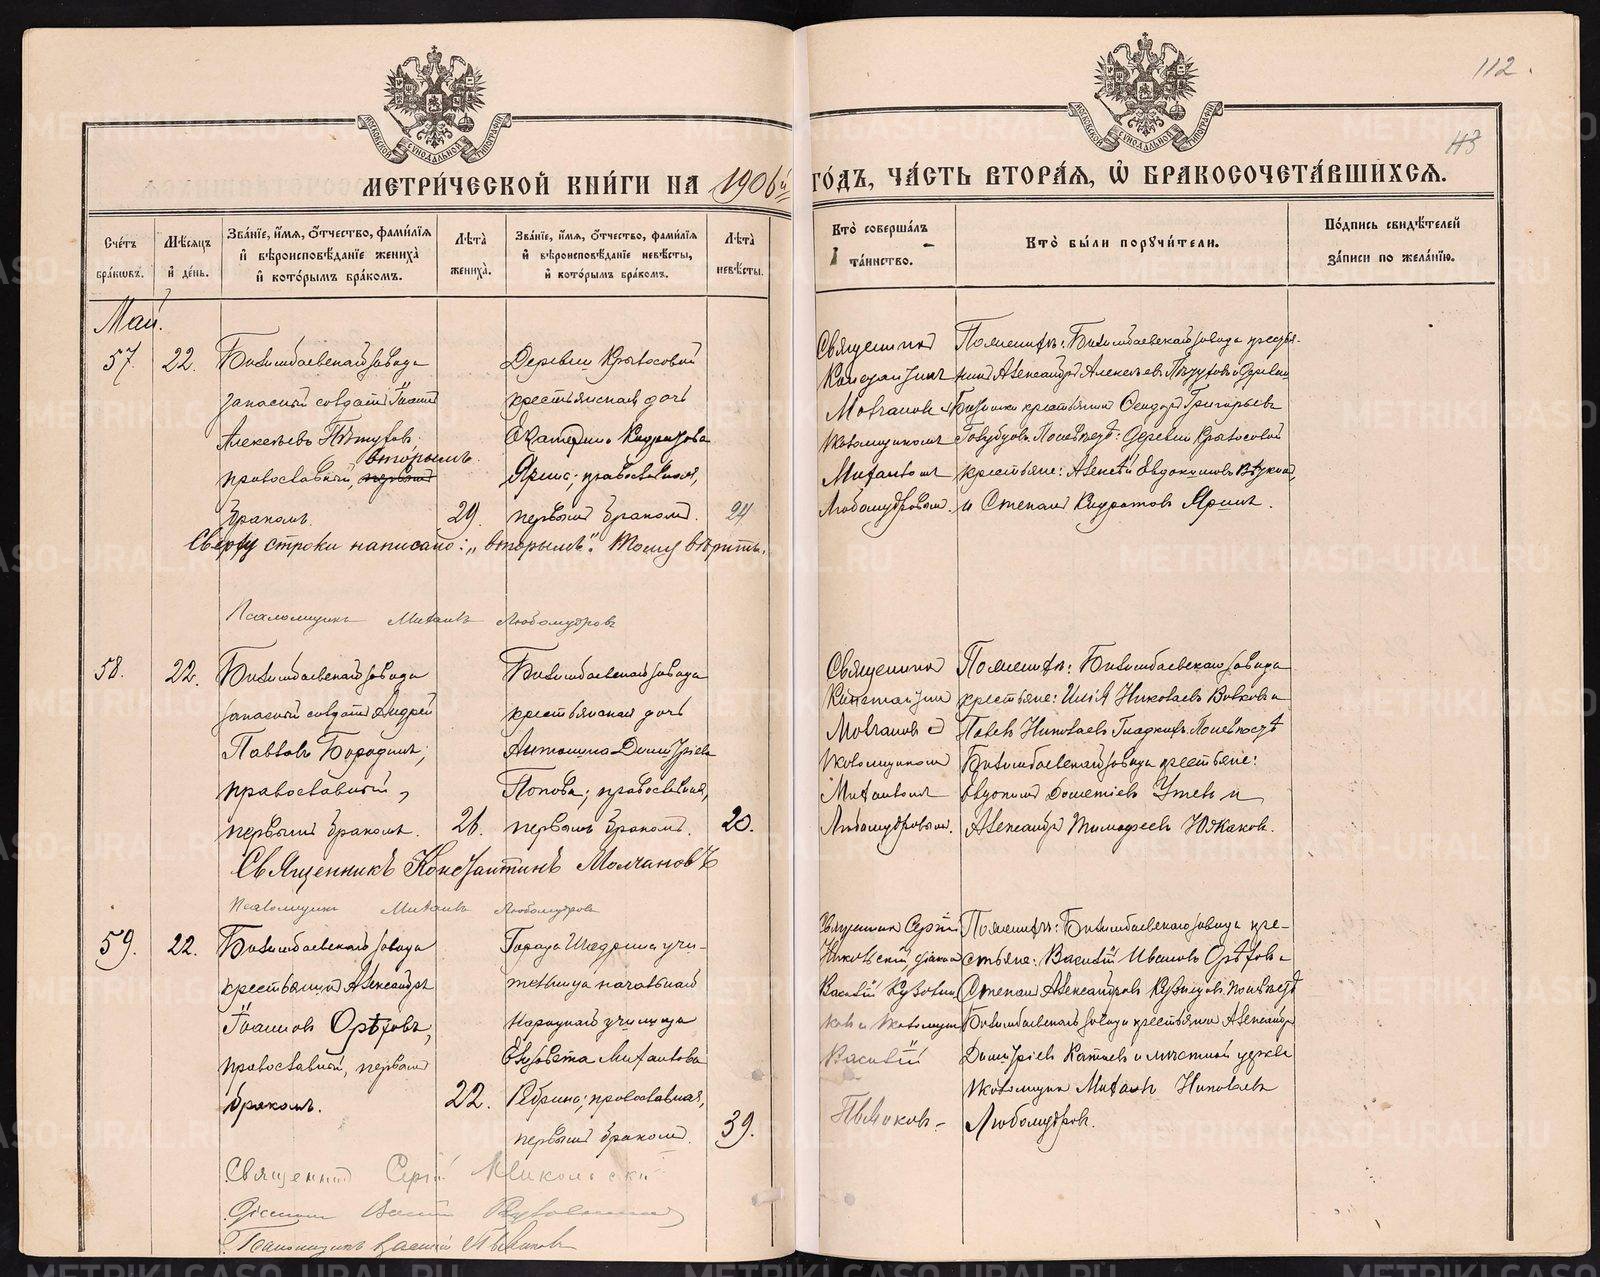 112.
113
МОСКОВСКОЙ СѴНОДАЛЬНОЙ ТИПОГРАФІИ
МОСКОВСКОЙ СѴНОДАЛЬНОЙ ТИПОГРАФІИ
МЕТРИ́ЧЕСКОЙ КНИ́ГИ НА 1906й ГО́ДЪ, ЧА́СТЬ ВТОРА́Ѧ, Ѡ҆ БРАКОСОЧЕТА́ВШИХСѦ.
Сче́тъ бра́кѡвъ.
Мѣ́сѧцъ и҆ де́нь.
Зва́нїе, и҆́мѧ, ѻ҆́тчество, фами́лїѧ и҆ вѣроисповѣ́данїе жениха̀ и҆ кото́рымъ бра́комъ.
Лѣ́та жениха̀.
Зва́нїе, и҆́мѧ, ѻ҆́тчество, фами́лїѧ и҆ вѣроисповѣ́данїе невѣ́сты, и҆ кото́рымъ бра́комъ.
Лѣ́та невѣ́сты.
Кто̀ соверша́лъ та́инство.
Кто̀ бы́ли порꙋчи́тели.
По́дпись свидѣ́телей за́писи по жела́нїю.
Май.
57.
22.
Билимбаевскаго завода
запасный солдатъ Іоаннъ
Алексѣевъ Пѣтуховъ.
вторымъ
православный, первымъ
бракомъ.
29.
Деревни Крылосовой
крестьянская дочь
Екатерина Кидратова
Ярина; православная,
первымъ бракомъ.
24
Священникъ
Константинъ
Молчановъ съ
псаломщикомъ
Михаиломъ
Любомудровымъ.
Поженихѣ: Билимбаевскаго завода крестья-
нинъ Александръ Алексѣевъ Пѣтуховъ и деревни
крестьянинъ Ѳеодоръ Григорьевъ
Поневѣстѣ: деревни Крылосовой
крестьяне: Алексѣй Евдокимовъ
и Степанъ Кидратовъ Яринъ.
Сверху строки написано: „вторымъ“. Тому вѣрить.
Псаломщикъ Михаилъ Любомудровъ
58.
22.
Билимбаевскаго завода
запасный солдатъ Андрей
Павловъ Бородинъ;
православный,
первымъ бракомъ.
26.
Билимбаевскаго завода
крестьянская дочь
Антонина Димитріева
Попова; православная,
первымъ бракомъ.
20.
Священникъ
Константинъ
Молчановъ съ
псаломщикомъ
Михаиломъ
Любомудровымъ.
Поженихѣ: Билимбаевскаго завода
крестьяне: Илія Николаевъ Волковъ и
Павелъ Николаевъ Гладкихъ. Поневѣстѣ
Билимбаевскаго завода крестьяне:
Евдокимъ Дометіевъ Утевъ и
Александръ Тимофеевъ Южаковъ.
Священникъ Константинъ Молчановъ
Псаломщикъ Михаилъ Любомудровъ
59.
22.
Билимбаевскаго завода
крестьянинъ Александръ
Іоанновъ Орѣховъ,
православный, первымъ
бракомъ.
22.
Города Шадринска учи-
тельница начальнаго
народнаго училища
Елизавета Михаилова
Ребрина; православная,
первымъ бракомъ.
39.
Священникъ Сергій
Никольскій, діаконъ
Василій
псаломщикъ
Василій
Пьянковъ.
Поженихѣ: Билимбаевскаго завода кре-
стьяне: Василій Ивановъ Орѣховъ и
Степанъ Александровъ Кузнецовъ. Поневѣстѣ
Билимбаевскаго завода крестьянинъ Александръ
Димитріевъ Катаевъ и мѣстной церкви
псаломщикъ Михаилъ Николаевъ
Любомудровъ.
Священникъ Сергій Никольскій
Діаконъ Василій
Псаломщикъ Василій Пьянковъ
METRIKI.GASO-URAL.RU